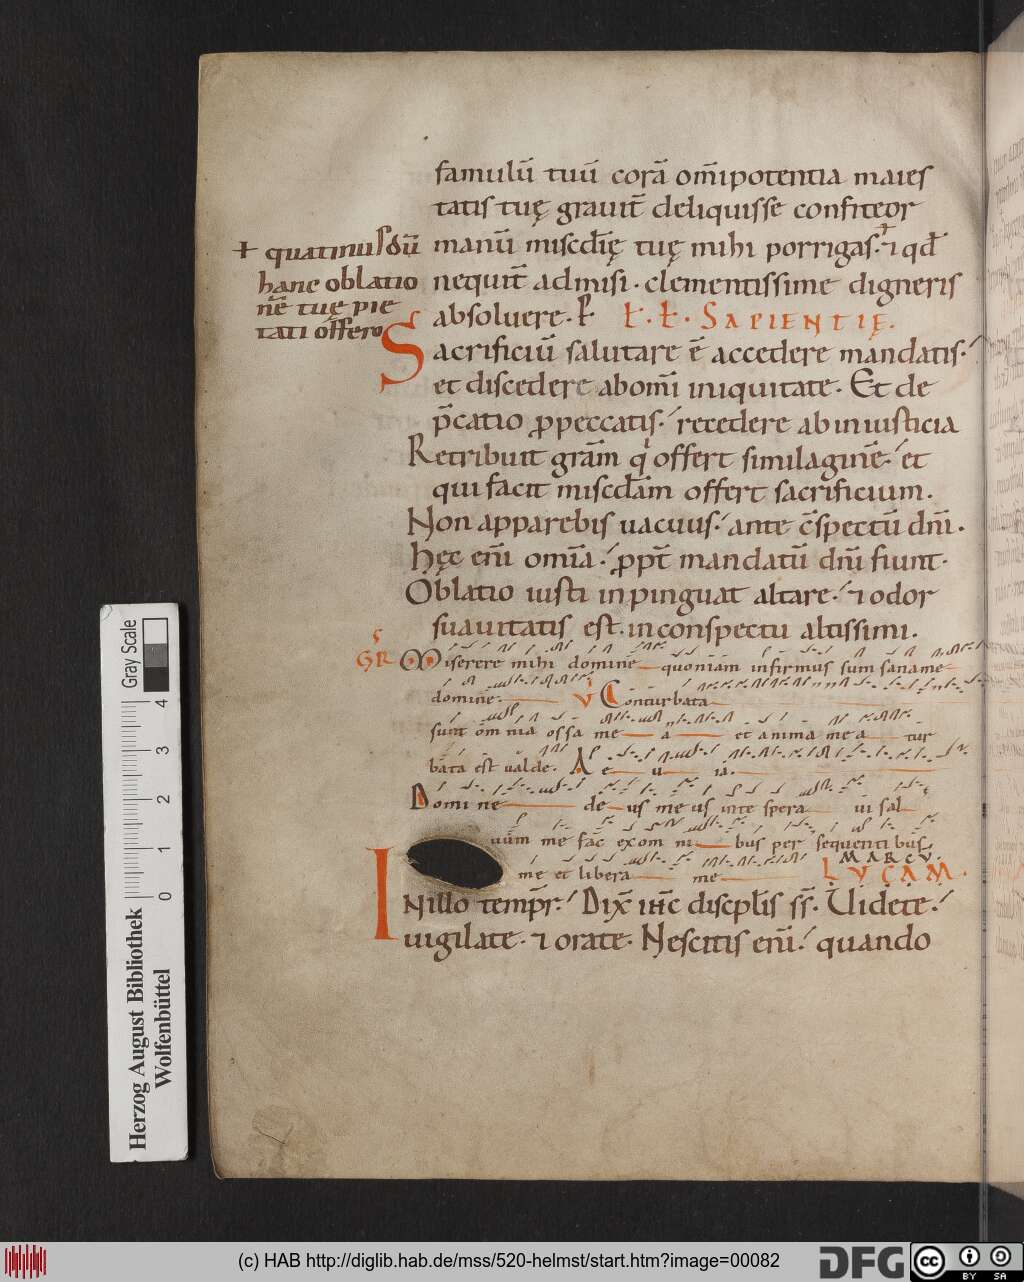 famulū tuū corā om̄ipotentia maies
tatis tuę grauit̄ deliquisse confiteor
+ quatinus dū
hanc oblatio
nē tuę pie
tati offero
manū misc̄dię tuę mihi porrigas. ⁊ qđ
nequit̄ admisi. clementissime digneris
absoluere. P
Ł. Ł. SAPIENTIĘ.
Sacrificiū salutare ē accedere mandatis.
et discedere ab om̄i iniquitate. Et de
p̄catio ꝓpeccatis. recedere ab iniusticia
Retribuit grām qͥ offert similaginē. et
qui facit misc̄dam offert sacrificium.
Non apparebis uacuus. ante c̄spectū dn̄i.
Hęc en̄i omīa. ꝓpt̄ mandatū dn̄i fiunt.
Oblatio iusti inpinguat altare. ⁊ odor
suauitatis est. in conspectu altissimi.
GR Miserere mihi domine quoniam infirmus sum saname
domine. V Conturbata
sunt omnia ossa me a et anima mea tur
bata est ualde. A e u ia.
Domine de us me us inte spera ui sal
uūm me fac exom ni bus per sequenti bus
me et libera me
MARCV.
LVCAM.
Inillo temp̄r. Dix̄ ih̄c discpl̄is s̄s. Uidete.
uigilate. ⁊ orate. Nescitis en̄i. quando
Gray Scale
0 1 2 3 4
Herzog August Bibliothek
Wolfenbüttel
(c) HAB http://diglib.hab.de/mss/520-helmst/start.htm?image=00082
DFG
cc
BY SA